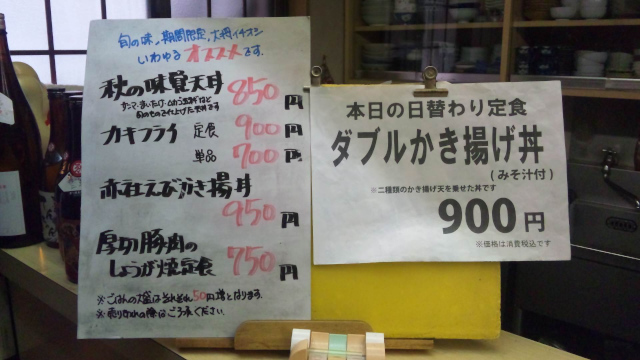 旬の味、期間限定、大将イチオシ
いわゆるオススメです。
秋の味覚天丼 850円
カキフライ 定食 900円
単品 700円
赤社えびかき揚丼
950円
厚切豚肉の
しょうが焼定食 750円
※ごはんの大盛はそれぞれ50円増となります。
※売り切れの際はご了承ください。
本日の日替わり定食
ダブルかき揚げ丼
(みそ汁付)
※二種類のかき揚げ天を乗せた丼です
900円
※価格は消費税込です